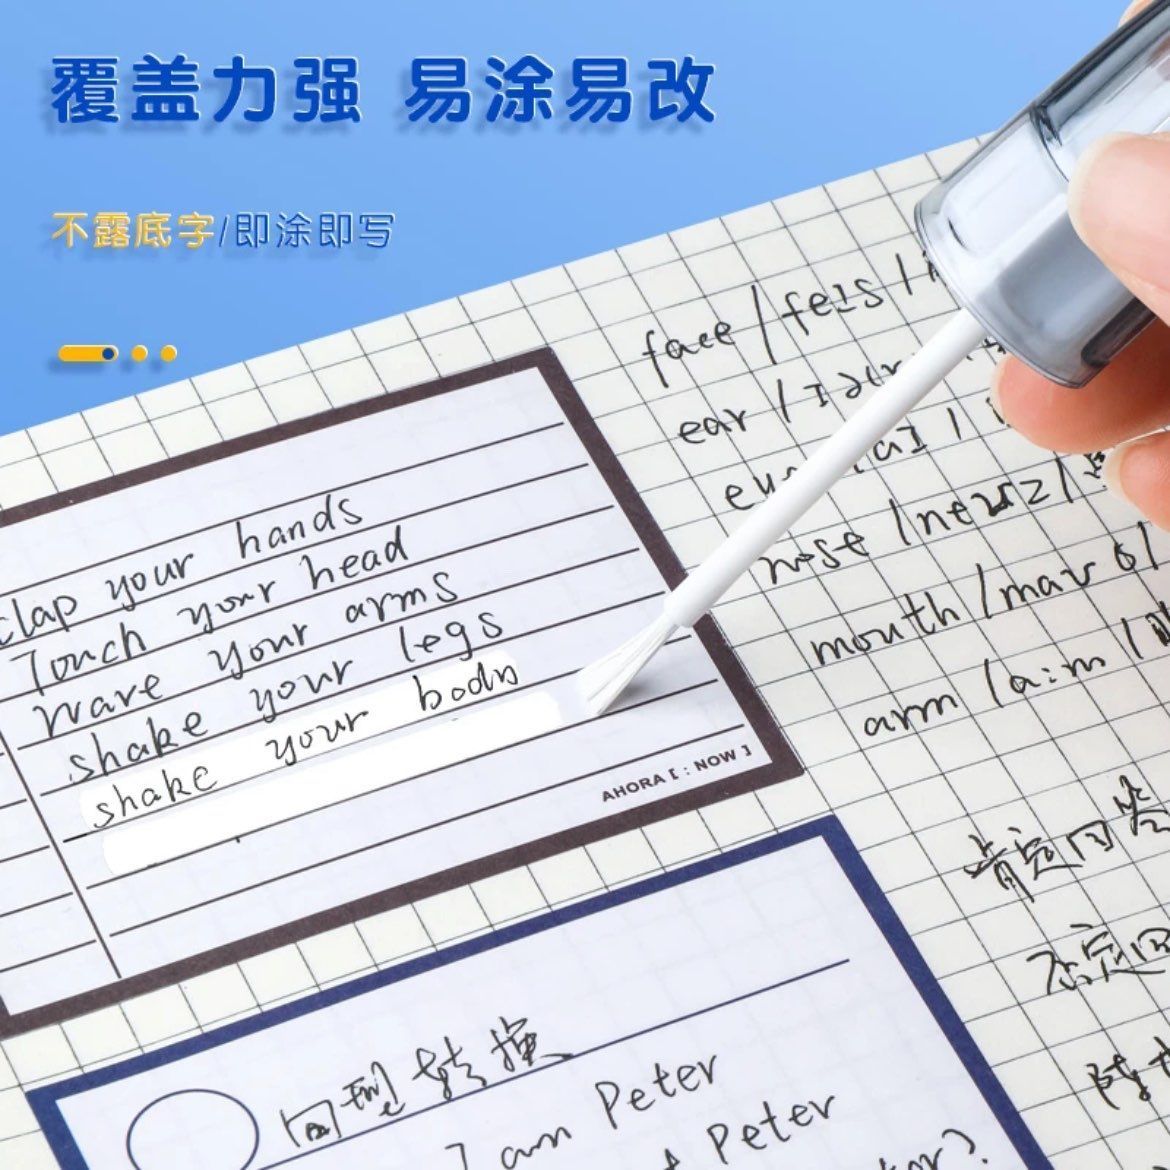 覆盖力强 易涂易改
不露底字/即涂即写
clap your hands
Touch your head
wave your arms
shake your legs
shake your body
AHORA [ : NOW ]
face /feis /
ear /
nose /
mouth /
arm /a:m /
肯定回答
否定回
句型转换
I am Peter
Peter